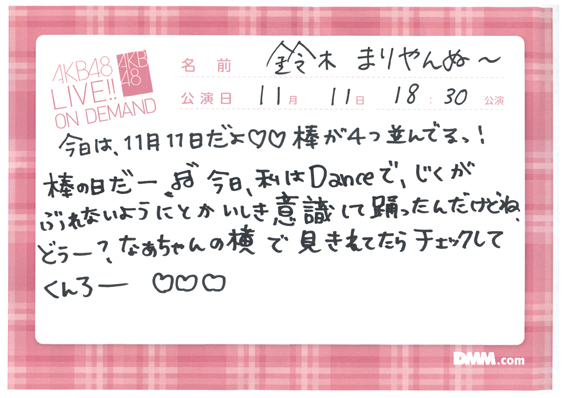 AKB48
LIVE!!
ON DEMAND
AKB
48
名前 鈴木まりやんぬ〜
公演日 11月 11日 18:30 公演
今日は、11月11日だよ♡♡棒が4つ並んでるっ!
棒の日だー 今日、私はDanceで、じくが
ぶれないようにとかいしき意識して踊ったんだけどね、
どうー?、なあちゃんの横で見きれてたらチェックして
くんろー ♡♡♡
DMM.com